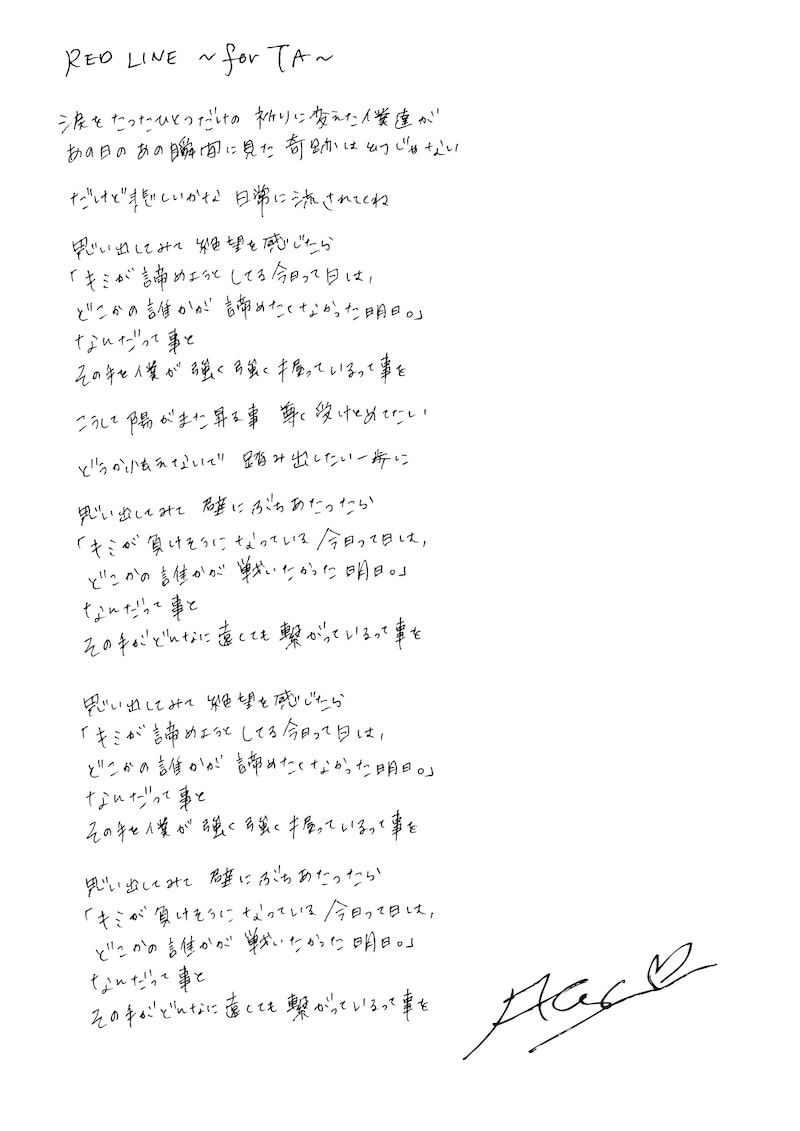 RED LINE ～for TA～
涙をたったひとつだけの 祈りに変えた僕達が
あの日のあの瞬間に見た 奇跡は 嘘じゃない
だけど悲しいかな 日常に流されてくね
思い出してみて 絶望を感じたら
「キミが諦めようとしてる今日って日は,
どこかの誰かが 諦めたくなかった明日。」
なんだって事と
その手を僕が 強く強く握っているって事を
こうして陽がまた昇る事 尊く受けとめてたい
どうか忘れないで 踏み出したい一歩に
思い出してみて 壁にぶちあたったら
「キミが負けそうになっている 今日って日は,
どこかの誰かが 戦いたかった明日。」
なんだって事と
その手がどんなに遠くても繋がっているって事を
思い出してみて 絶望を感じたら
「キミが諦めようとしてる今日って日は,
どこかの誰かが 諦めたくなかった明日。」
なんだって事と
その手を僕が 強く強く握っているって事を
思い出してみて 壁にぶちあたったら
「キミが負けそうになっている 今日って日は,
どこかの誰かが 戦いたかった明日。」
なんだって事と
その手がどんなに遠くても繋がっているって事を